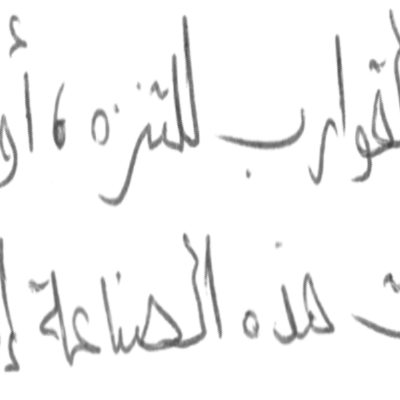 القوارب للتنزه، أو
هذه الصناعة